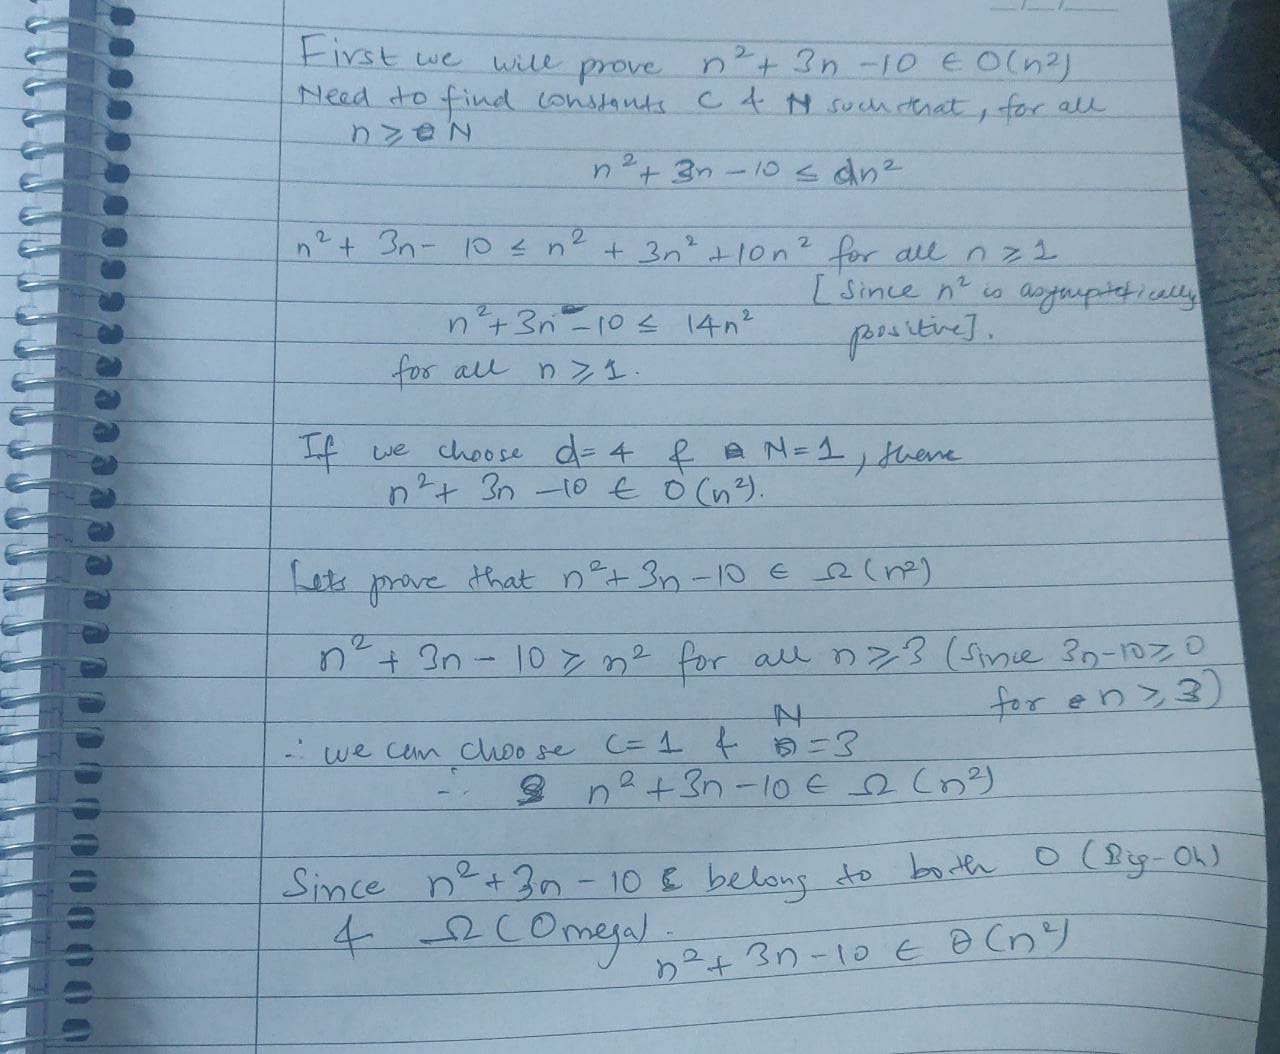 First we will prove n² + 3n - 10 ∈ O(n²)
Need to find constants C & N such that, for all
n ≥ N
n² + 3n - 10 ≤ dn²
n² + 3n - 10 ≤ n² + 3n² + 10n² for all n ≥ 1
[Since n² is asymptotically
n² + 3n - 10 ≤ 14n² positive].
for all n ≥ 1.
If we choose d = 4 & N = 1, then
n² + 3n - 10 ∈ O(n²).
Lets prove that n² + 3n - 10 ∈ Ω(n²)
n² + 3n - 10 ≥ n² for all n ≥ 3 (Since 3n-10 ≥ 0
for n ≥ 3)
∴ we can choose C = 1 & N = 3
∴ n² + 3n - 10 ∈ Ω(n²)
Since n² + 3n - 10 belong to both O (Big-Oh)
& Ω (Omega).
n² + 3n - 10 ∈ θ(n²)